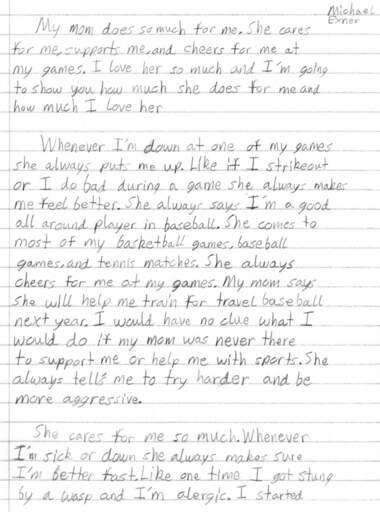 Michael
Exner
My mom does so much for me. She cares
for me, supports me, and cheers for me at
my games. I love her so much and I'm going
to show you how much she does for me and
how much I love her
Whenever I'm down at one of my games
she always puts me up. Like if I strikeout
or I do bad during a game she always makes
me feel better. She always says I'm a good
all around player in baseball. She comes to
most of my basketball games, baseball
games, and tennis matches. She always
cheers for me at my games. My mom says
she will help me train for travel baseball
next year. I would have no clue what I
would do if my mom was never there
to support me or help me with sports. She
always tells me to try harder and be
more aggressive.
She cares for me so much. Whenever
I'm sick or down she always makes sure
I'm better fast. Like one time I got stung
by a wasp and I'm alergic. I started